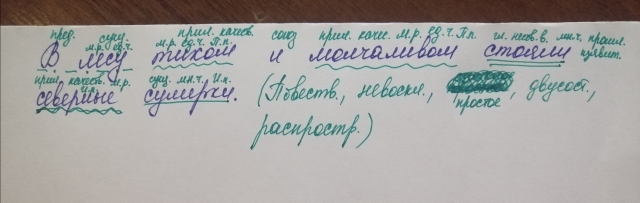 пред. сущ. прил. качеств. союз прил. качес. м.р. ед.ч. П.п. гл. несов.в. мн.ч. прошл.
м.р. ед.ч. м.р. ед.ч. П.п. изъявит.
В лесу тихом и молчаливом стояли
прил. качеств. м.р. сущ. мн.ч. И.п.
И.п.
северные сумерки. (Повеств., невоскл., простое, двусост.,
распростр.)